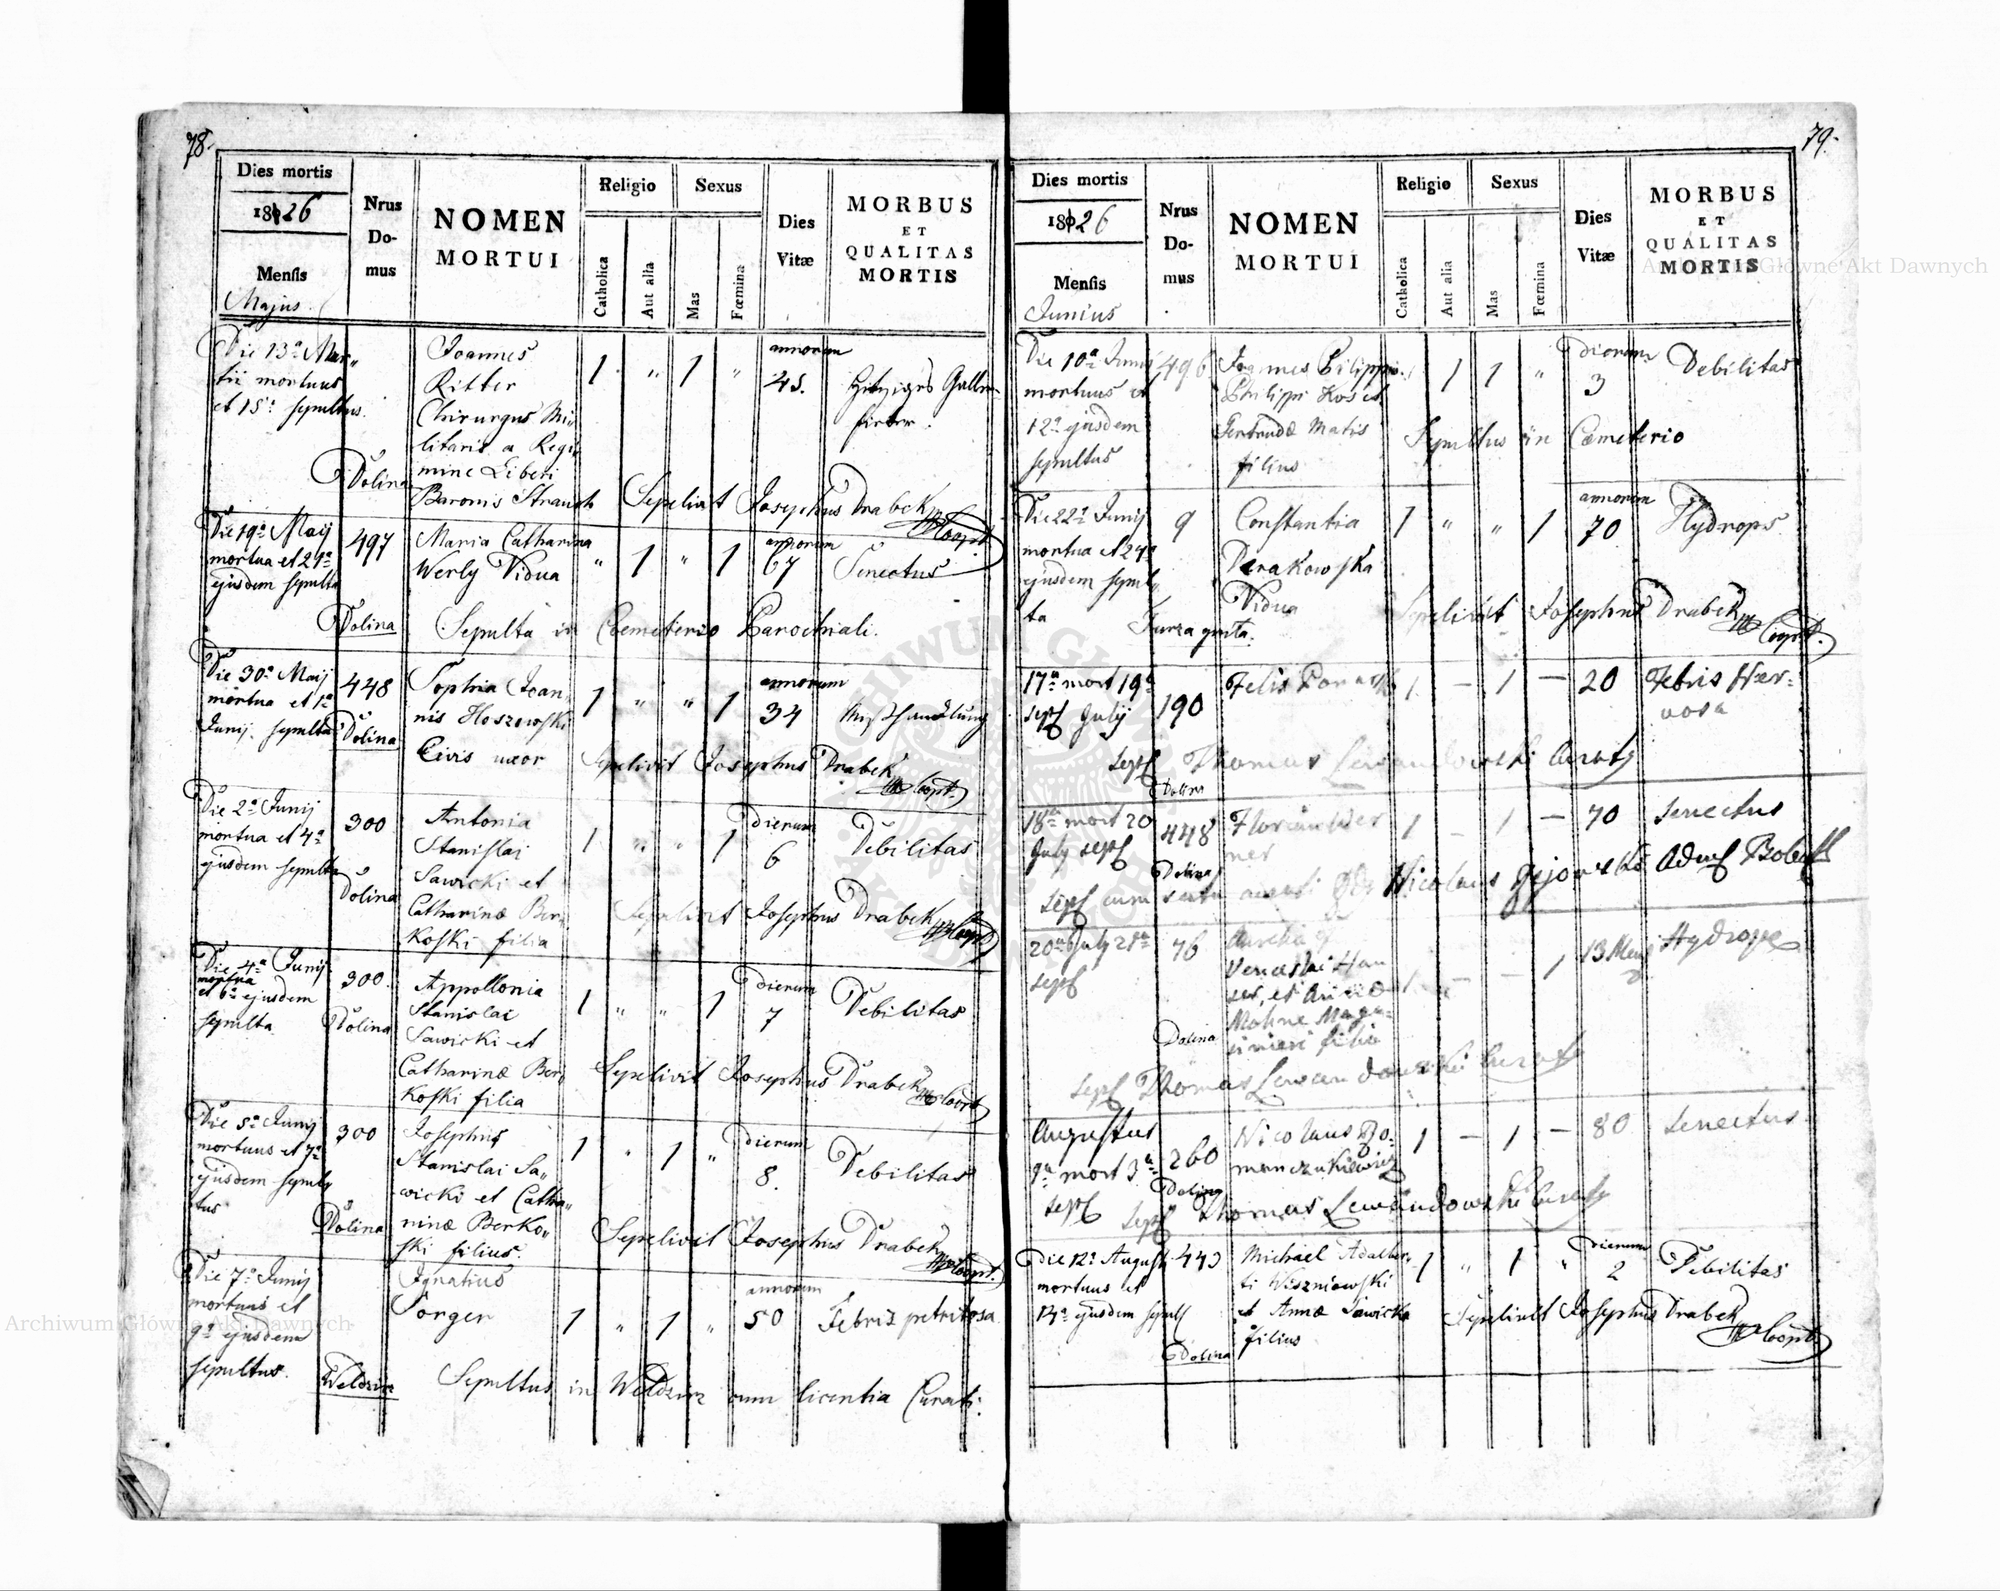 78.
Dies mortis
1826
Mensis
Majus
Nrus
Do-
mus
NOMEN
MORTUI
Religio
Catholica
Aut alia
Sexus
Mas
Fœmina
Dies
Vitæ
MORBUS
ET
QUALITAS
MORTIS
Die 13ª Mar„
tii mortuus
et 15ª sepultus.
Dolina
Joannes
Ritter
Chirurgus Mi„
litaris a Regi„
mine Liberi
Baronis Strauch
1 „ 1 „
annorum
45.
Hitziges Gallen
fieber.
Sepelivit Josephus Drabek Coopt.
Die 19ª Maij
mortua et 21ª
ejusdem sepulta
497
Dolina
Maria Catharina
Werly Vidua
„ 1 „ 1
annorum
67
Senectus
Sepulta in Coemeterio Parochiali.
Die 30ª Maij
mortua et 1ª
Junij sepulta
448
Dolina
Sophia Joan„
nis Hoszowski
Civis uxor
1 „ „ 1
annorum
34
Mißhandlung
Sepelivit Josephus Drabek Coopt.
Die 2ª Junij
mortua et 4ª
ejusdem sepulta
300
Dolina
Antonia
Stanislai
Sawicki et
Catharinæ Ber„
koski filia
1 „ „ 1
Dierum
6
Debilitas
Sepelivit Josephus Drabek Coopt.
Die 4ª Junij
mortua
et 6ª ejusdem
sepulta
300.
Dolina
Appollonia
Stanislai
Sawicki et
Catharinæ Ber„
koski filia
1 „ „ 1
Dierum
7
Debilitas
Sepelivit Josephus Drabek Coopt.
Die 5ª Junij
mortuus et 7ª
ejusdem sepul„
tus
300
Dolina
Josephus
Stanislai Sa„
wicki et Catha„
rinæ Berko„
ski filius.
1 „ 1 „
Dierum
8.
Debilitas
Sepelivit Josephus Drabek Coopt.
Die 7ª Junij
mortuus et
9ª ejusdem
sepultus.
Weldzirz
Ignatius
Sorger
1 „ 1 „
annorum
50
Febris petritosa
Sepultus in Weldzirz cum licentia Curati.
79.
Dies mortis
1826
Mensis
Junius
Nrus
Do-
mus
NOMEN
MORTUI
Religio
Catholica
Aut alia
Sexus
Mas
Fœmina
Dies
Vitæ
MORBUS
ET
QUALITAS
MORTIS
Die 10ª Junij
mortuus et
12ª ejusdem
sepultus
496
Joannes Philippus
Philippi Kos et
Gertrudæ Matis
filius
1 1 „
Dierum
3
Debilitas
Sepultus in Cœmeterio
Die 22ª Junij
mortua et 24ª
ejusdem sepul„
ta
9
Constantia
Derakowska
Vidua
1 „ „ 1
annorum
70
Hydrops
Sepelivit Josephus Drabek Coopt.
17ª mort 19ª
sepf July
190
Felis
1 — 1 —
20
Febris Ner-
vosa
sepf Thomas Lewandowski Curatg
Dolina
18ª mort 20
July sepf
448
Dolina
Florian Wer
ner
1 — 1 —
70
Senectus
sepf cum Nicolaus
20ª July 21ª
sepf
76
Dolina
Aurelia
Venceslai Hau
ser, et
filia
1 — — 1
13 Mens
Hydrope
sepf Thomas Lewandowski Curatg
Augustus
9ª mort 3ª
sepf
260
Dolina
Nicolaus Ro-
manczukiewicz
1 — 1 —
80
Senectus
sepf Thomas Lewandowski Curatg
Die 12ª Augusti
mortuus et
14ª ejusdem sepul
443
Dolina
Michael Adalber„
ti Wiszniowski
et Annæ Sawicka
filius
1 „ 1 „
Dierum
2
Debilitas
Sepelivit Josephus Drabek Coopt.
Archiwum Główne Akt Dawnych
Archiwum Główne Akt Dawnych